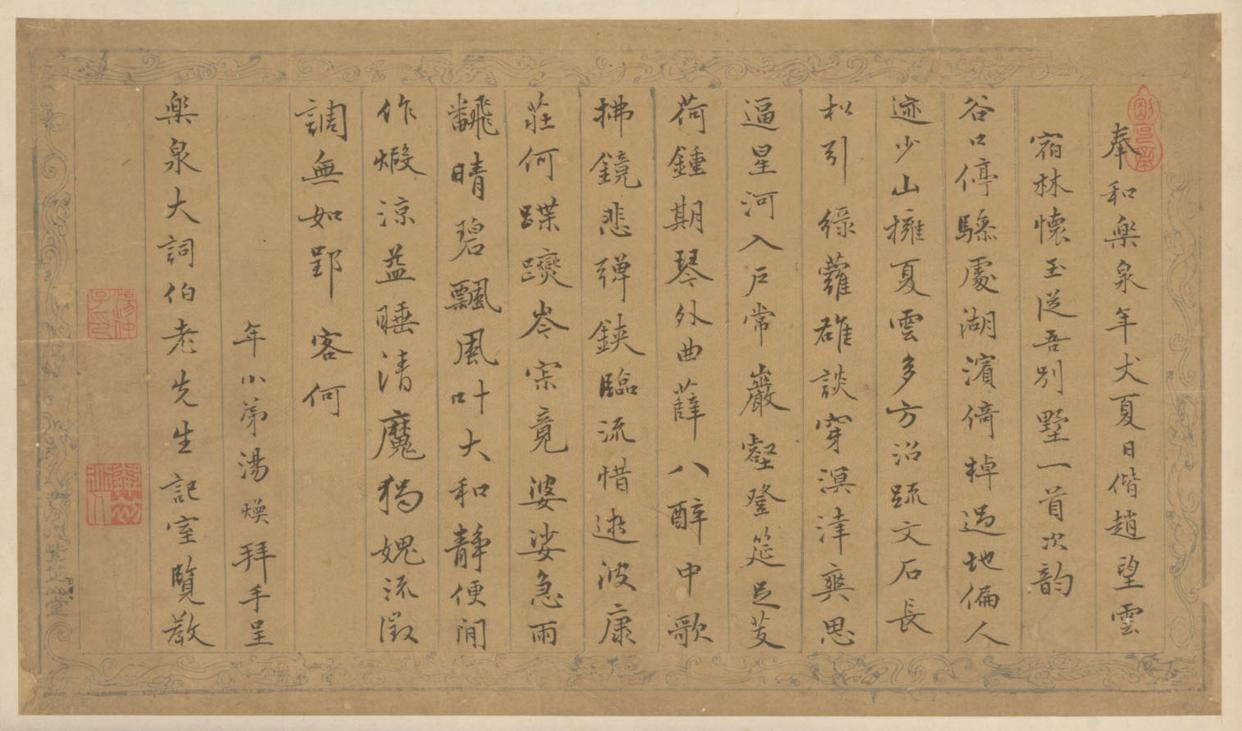 奉和樂泉年丈夏日偕趙望雲
宿林懷玉從吾別墅一首次韵
谷口停驂處湖濱倚棹過地偏人
迹少山擁夏雲多方沼疏文石長
松引綠蘿雄談穿溟涬爽思
逼星河入戶常巖壑登筵足芰
荷鍾期琴外曲薛八醉中歌
拂鏡悲彈鋏臨流惜逝波康
莊何蹀躞岑寂竟婆娑急雨
飜晴碧飄風叶大和静便閒
作煅涼益睡清魔猶媿流徵
調無如郢客何
年小弟湯煥拜手呈
樂泉大詞伯老先生記室覽教